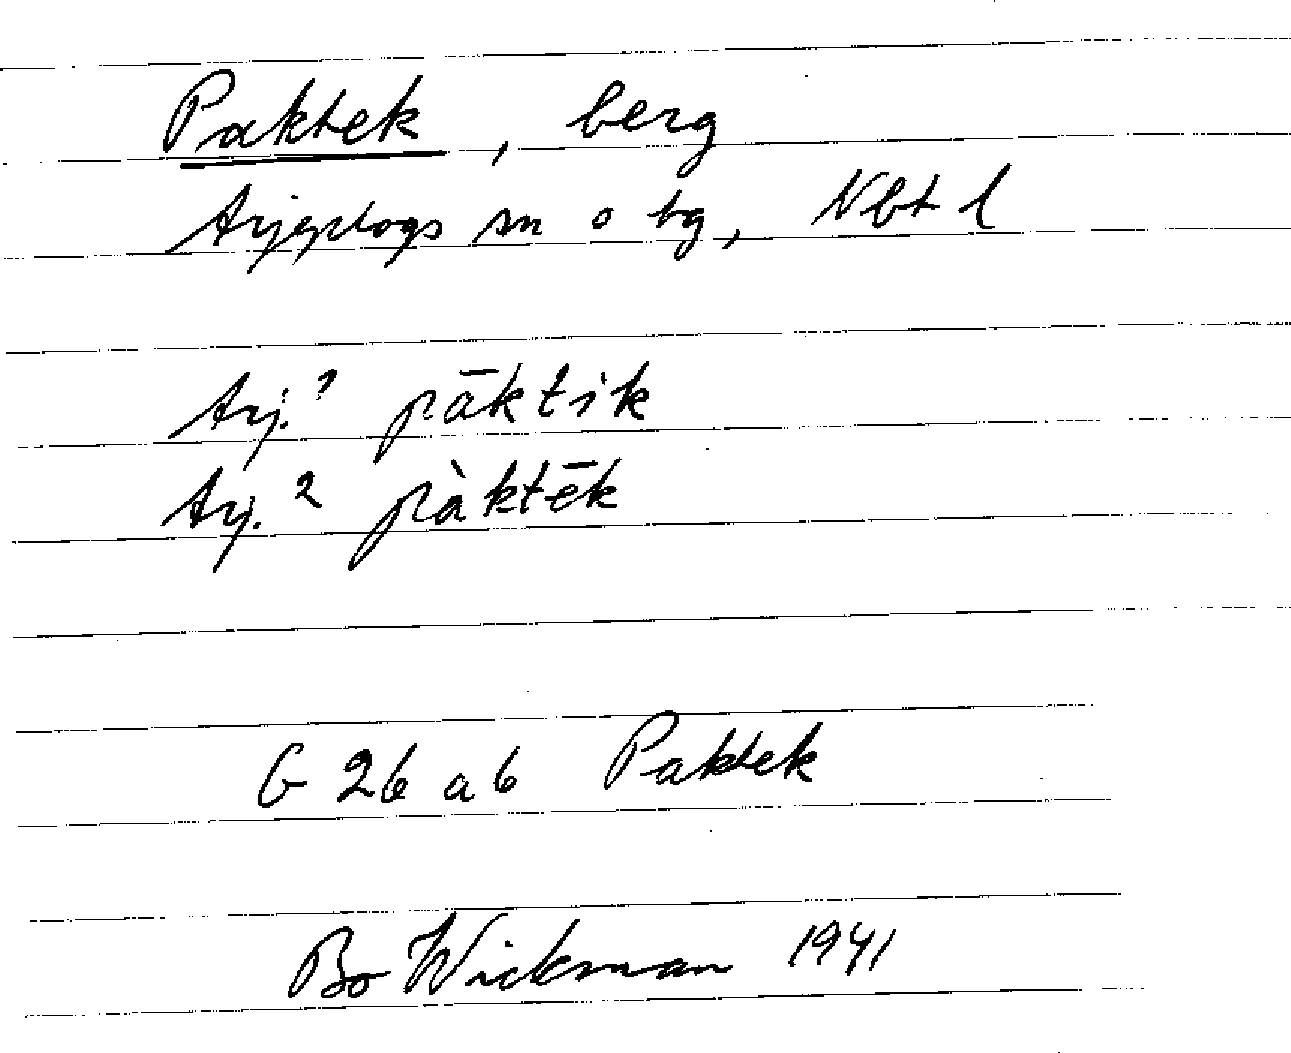 Paktek, berg
Arjeplogs sn o tg, Nbt l
Arj.¹ pāktik
Arj.² pàktēk
G 26 a 6 Paktek
Bo Wickman 1941